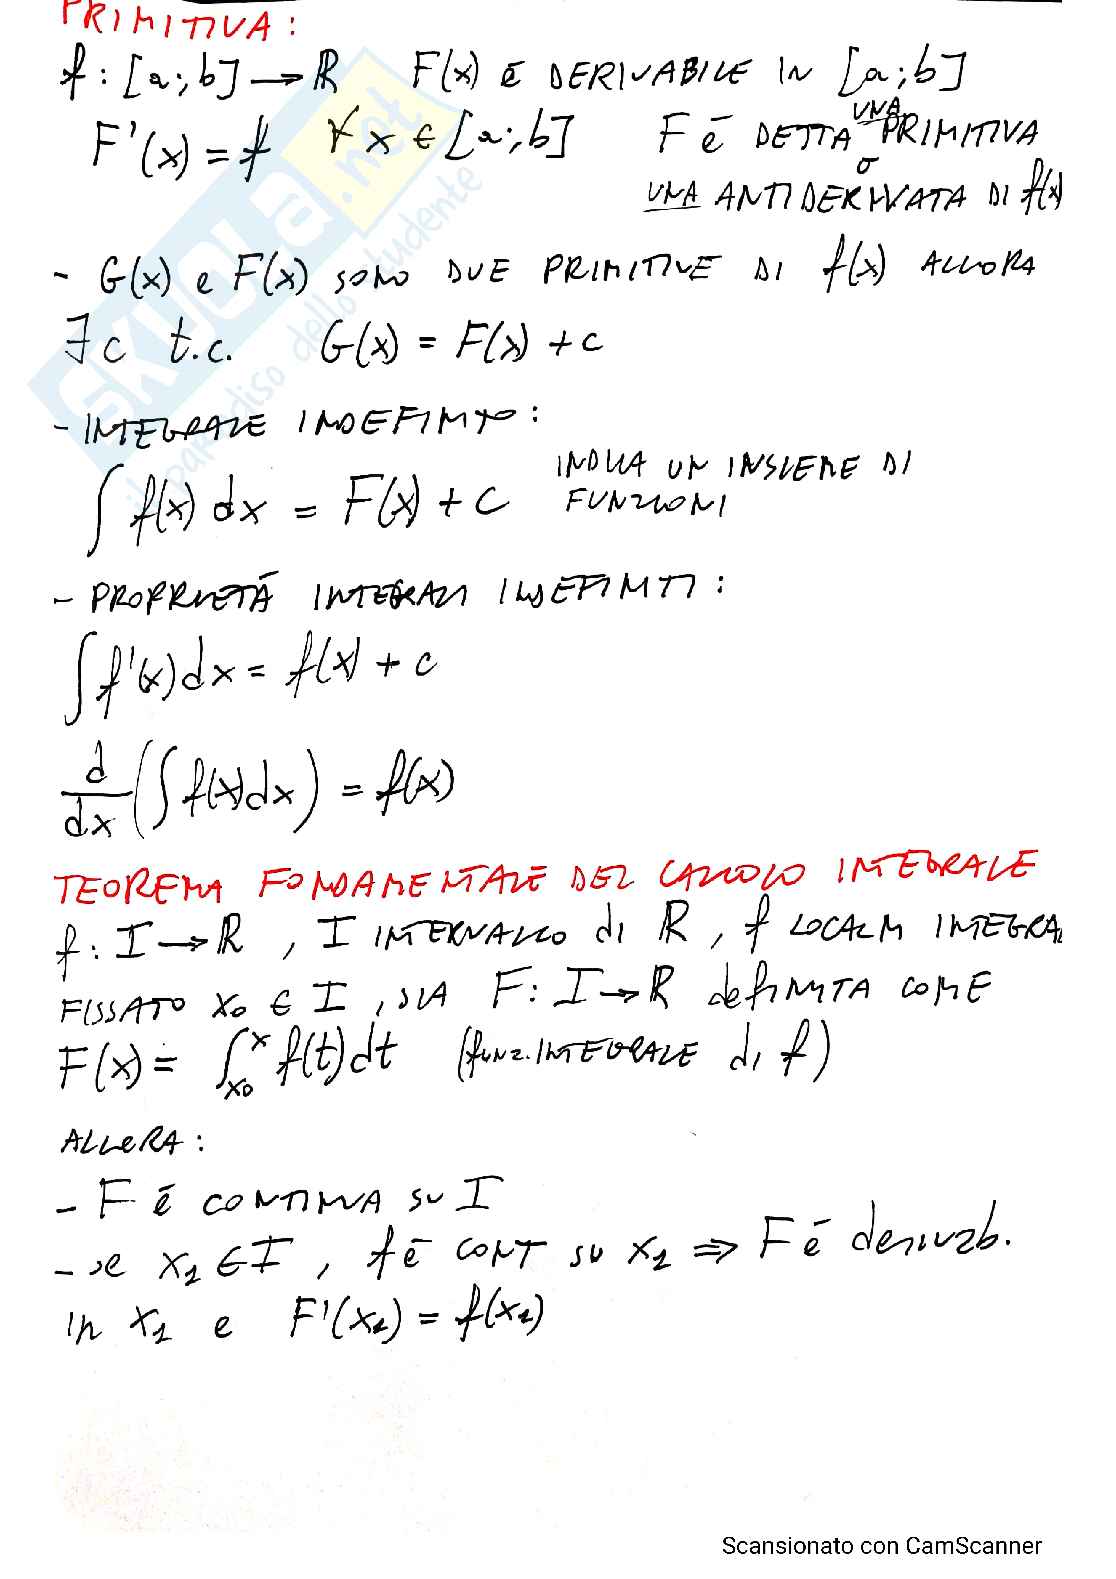 PRIMITIVA:
f: [a;b] → ℝ F(x) é DERIVABILE IN [a;b]
F'(x) = f ∀ x ∈ [a;b] F é DETTA UNA PRIMITIVA
o
UNA ANTIDERIVATA DI f(x)
- G(x) e F(x) SONO DUE PRIMITIVE DI f(x) ALLORA
∃ c t.c. G(x) = F(x) + c
- INTEGRALE INDEFINITO:
∫ f(x) dx = F(x) + c INDICA UN INSIEME DI
FUNZIONI
- PROPRIETÁ INTEGRALI INDEFINITI:
∫ f'(x) dx = f(x) + c
d/dx (∫ f(x) dx) = f(x)
TEOREMA FONDAMENTALE DEL CALCOLO INTEGRALE
f: I → ℝ , I INTERVALLO di ℝ , f LOCALM INTEGRA
FISSATO x0 ∈ I , SIA F: I → ℝ definita COME
F(x) = ∫_{x0}^{x} f(t) dt (funz. INTEGRALE di f)
ALLORA:
- F é CONTINUA su I
- se x1 ∈ I , f é CONT su x1 ⇒ F é derivab.
in x1 e F'(x1) = f(x1)
SKUOLA.net
il paradiso dello studente
Scansionato con CamScanner